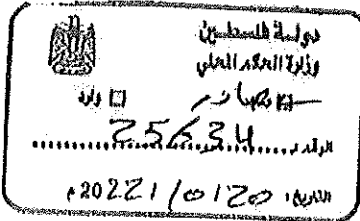 دولة فلسطين
وزارة الحكم المحلي
صادر ☐ وارد
الرقم: 25634
التاريخ: 20 / 10 / 2022م